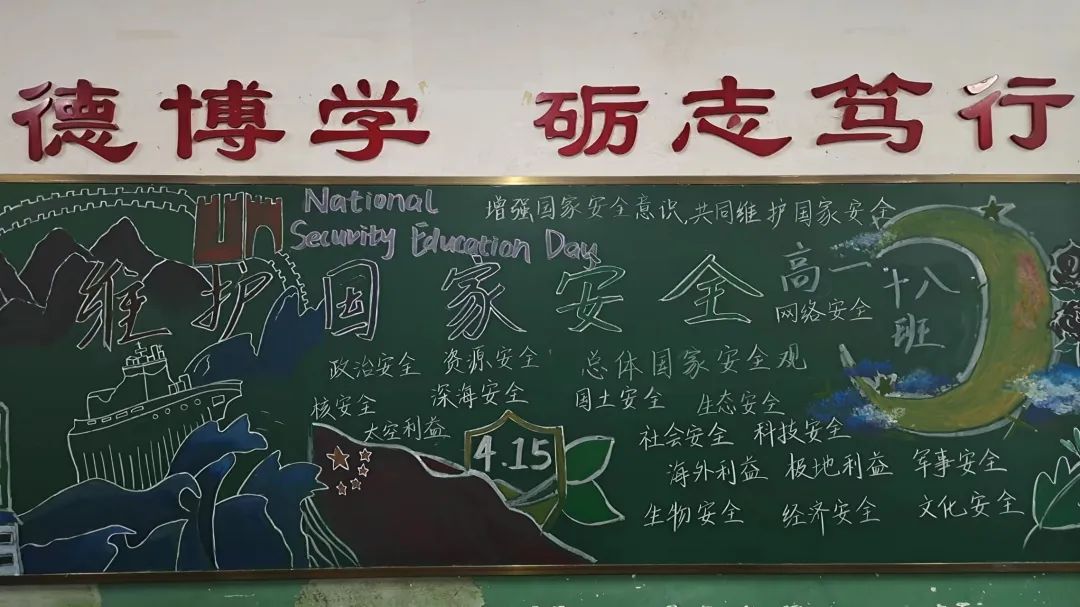 德博学 砺志笃行
National
Security Education Day
增强国家安全意识,共同维护国家安全
维护国家安全
高一
十八
班
网络安全
政治安全 资源安全 总体国家安全观
核安全 深海安全 国土安全 生态安全
太空利益 社会安全 科技安全
4.15
海外利益 极地利益 军事安全
生物安全 经济安全 文化安全